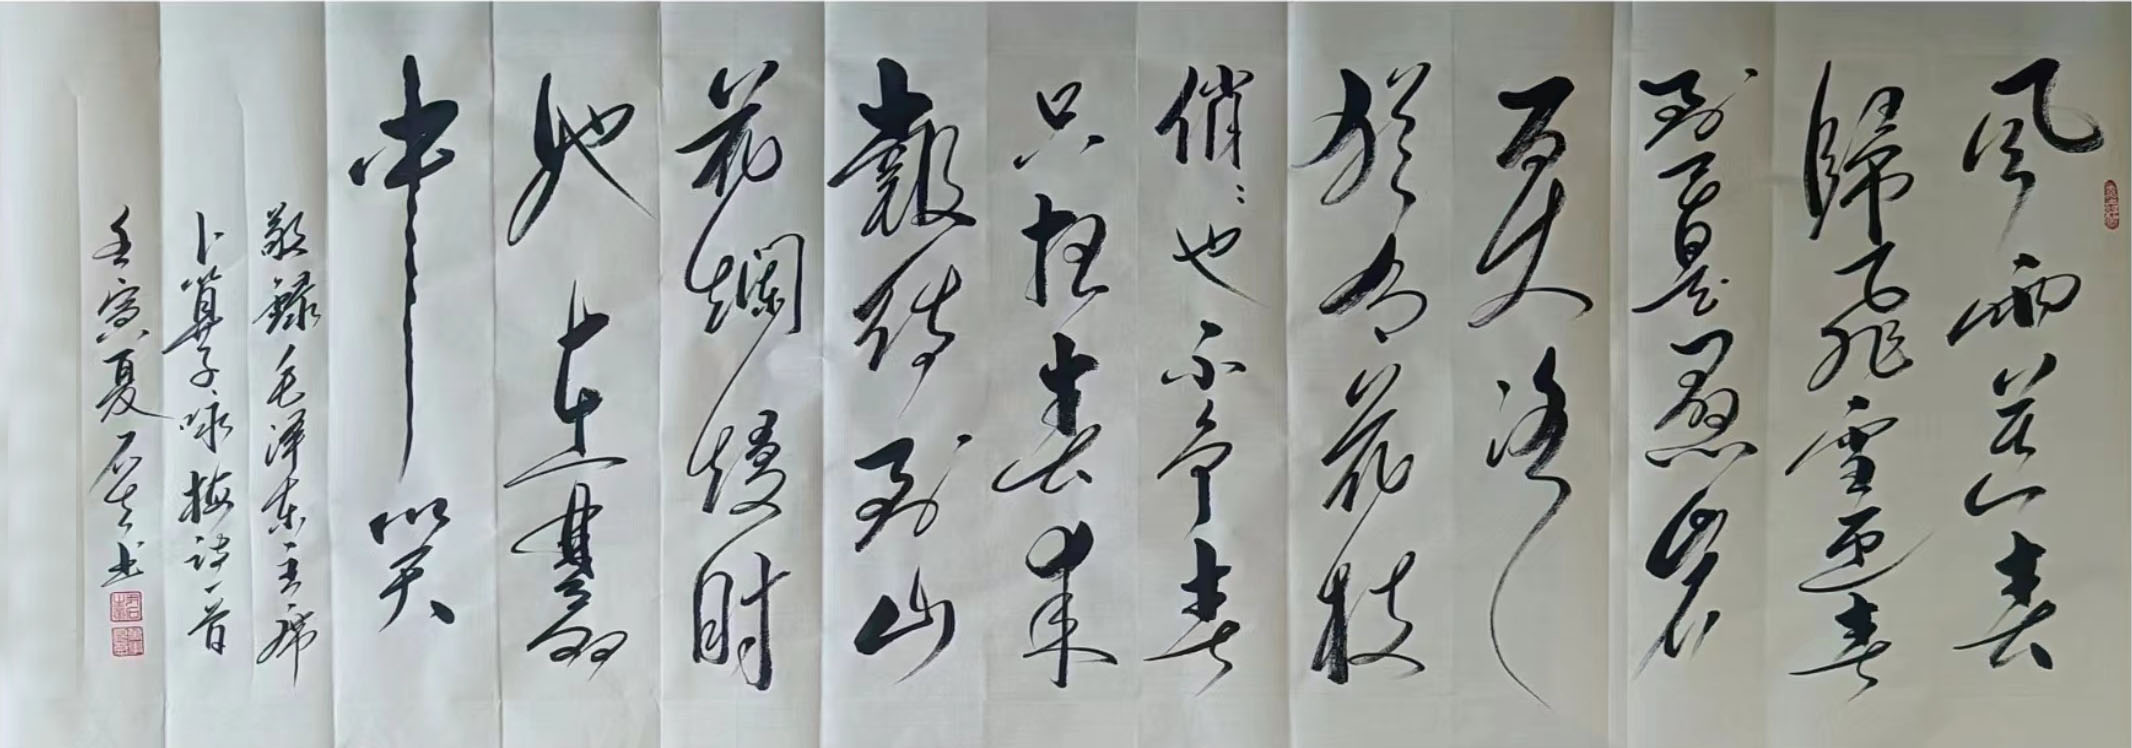 風雨送春
歸飛雪迎春
到已是懸崖
百丈冰
猶有花枝
俏〻也不争春
只把春來
報待到山
花爛熳時
她在叢
中笑
敬錄毛泽东主席
卜算子咏梅詩一首
壬寅夏石书